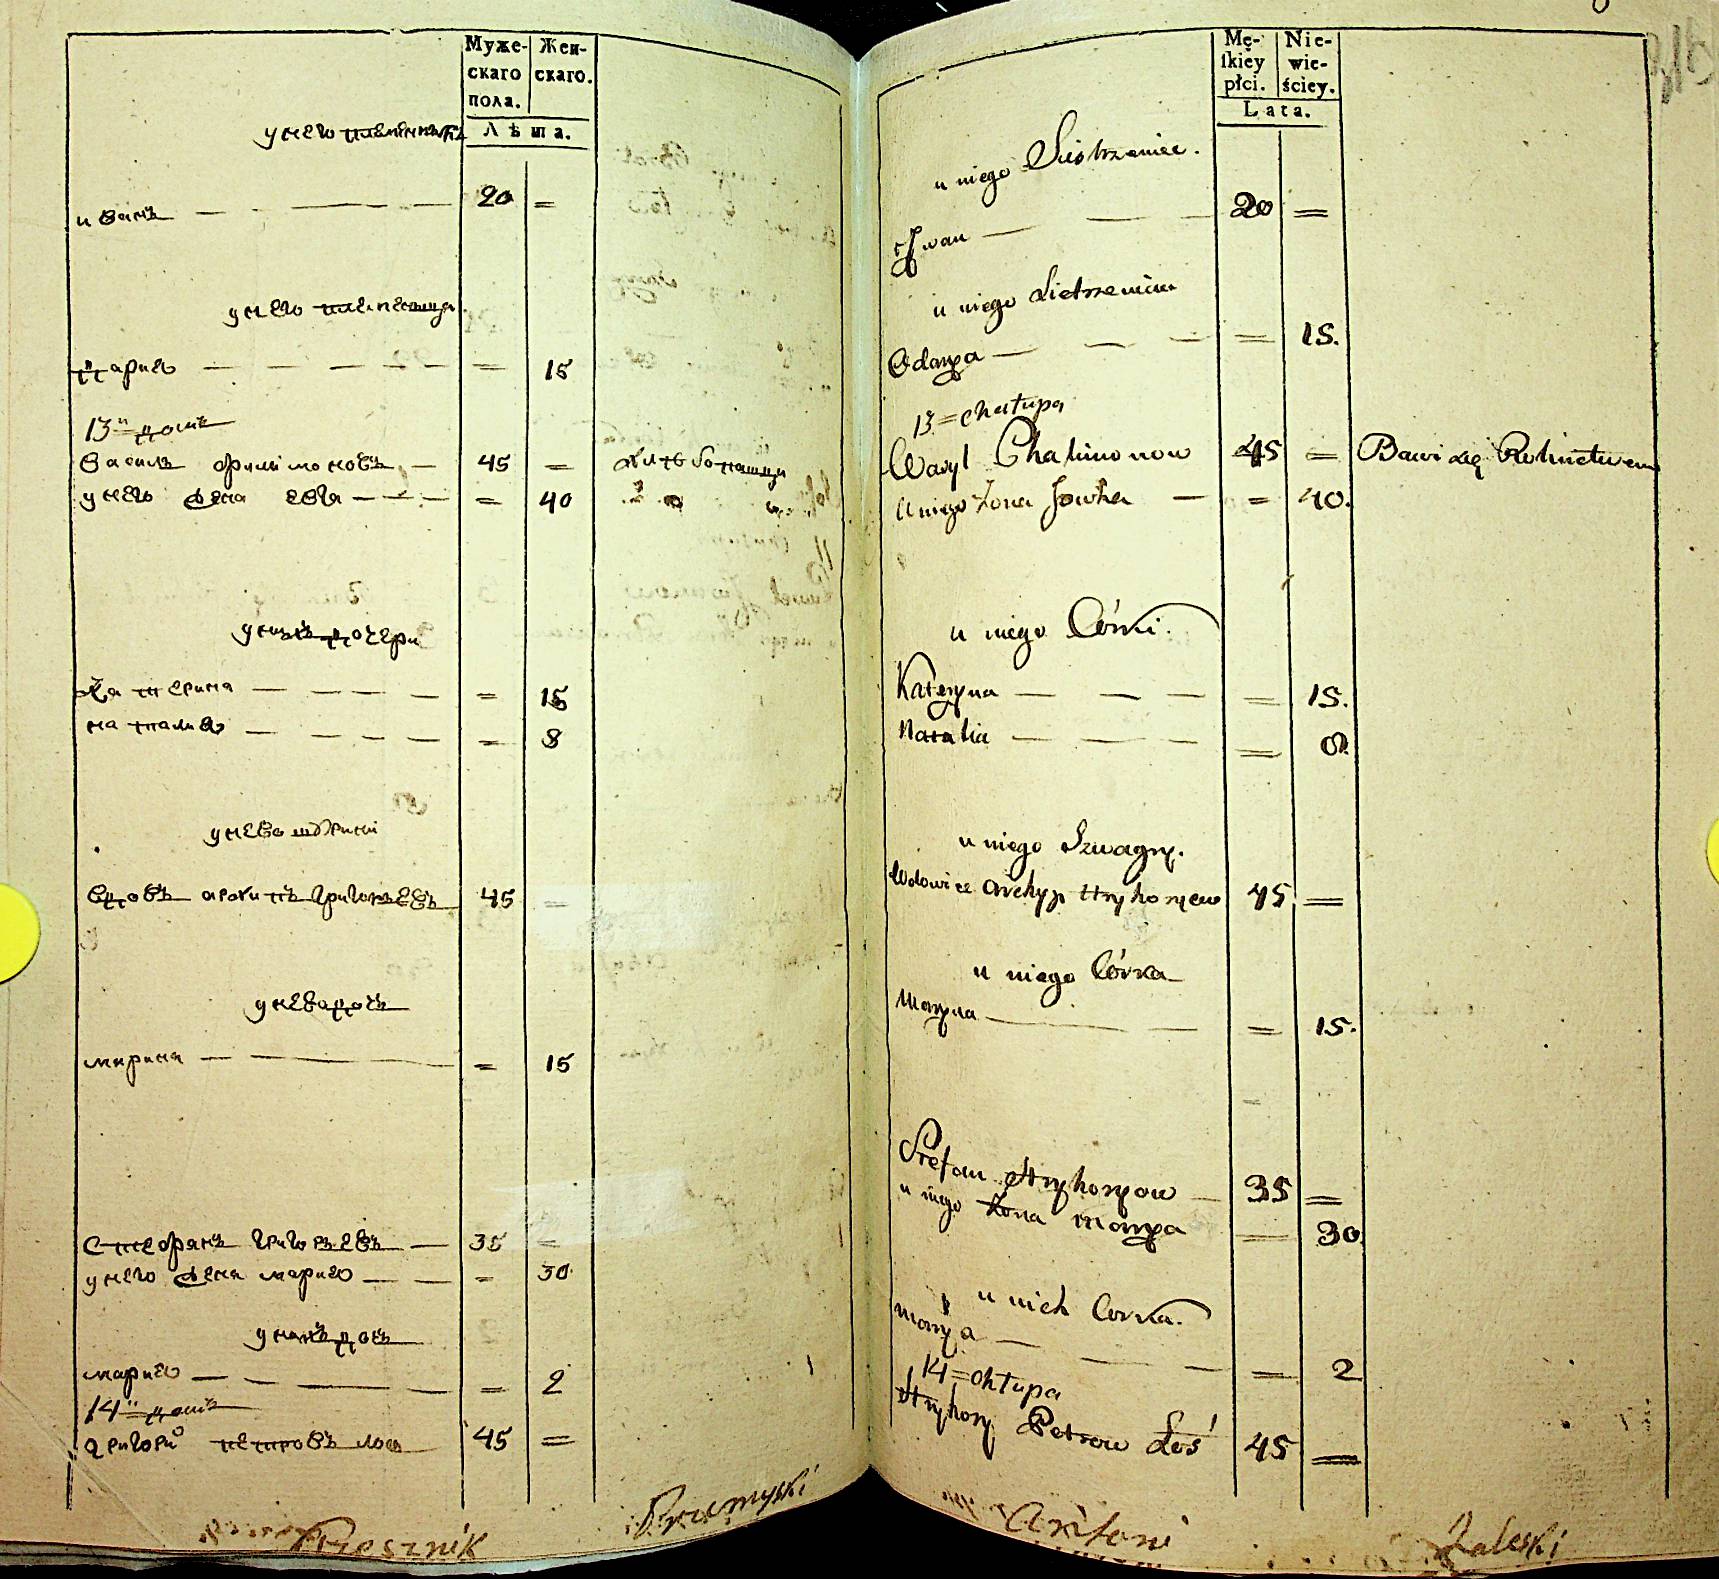 Муже-
скаго
пола.
Жен-
скаго.
Лѣта.
у него племенникъ
иванъ — — — — 20 =
у него племеница
дария — — — — = 15
13й домъ
василь филимоновъ — 45 =
у него жена евга — — — = 40
у нихъ дочери
катерина — — — — = 15
наталия — — — — = 8
у него
вдовъ архипъ григориевъ 45 =
у него дочь
марина — — = 15
стефанъ григориевъ — 35 =
у него жена мария — — = 30
у нихъ дочь
мария — — — — = 2
14й домъ
григори петровъ лось 45 =
Prosznik
Mę-
skiey
płci.
Nie-
wie-
ściey.
Lata.
u niego Siestrzeniec.
Jwan — — — 20 =
u niego Siestrzenica
Odarya — — — — = 15.
13 = chałupa
Wasyl Chalimonow 45 = Bawi się Rolnictwem
u niego Żona Jowha — = 40.
u niego Córki.
Kateryna — — — = 15.
Natalia — — — = 8.
u niego Szwagry.
Wdowiec Archyp Hryhoryew 45 =
u niego Córka
Maryna — — — = 15.
Stefan Hryhoryow — 35 =
u niego Żona Marya = 30
u nich Corka.
Marya — — — = 2
14 = chłupa
Hryhory Petrow Łoś 45 =
Antoni Zaleski